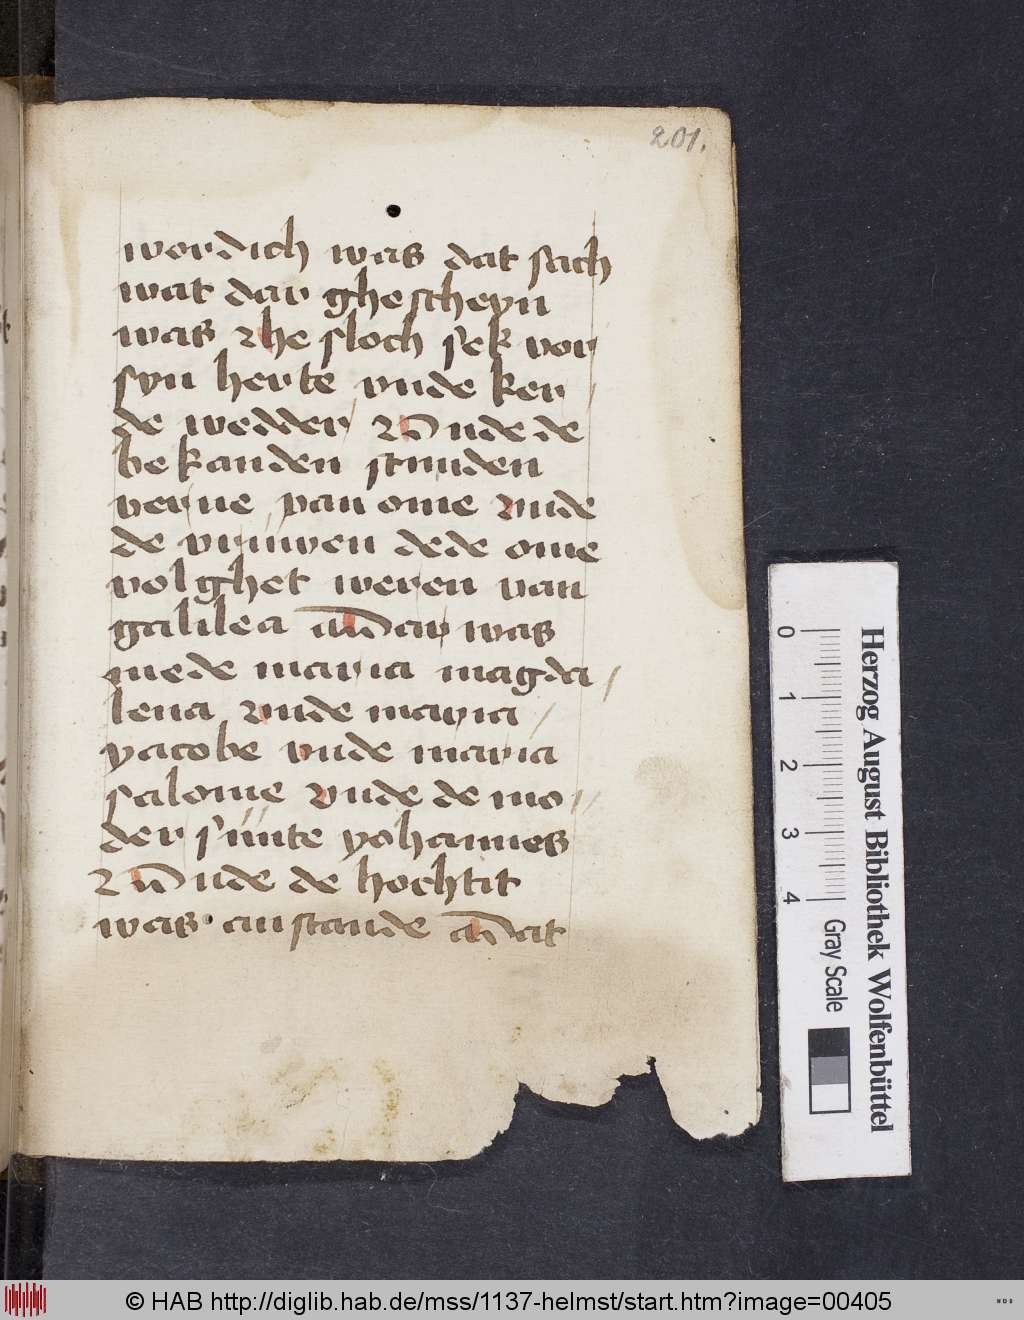 201.
werdich was dat sach
wat dar ghescheyn
was vnde he sloch sek vor
syn herte vnde ker
de wedder vnde de
bekanden stunden
verne van ome vnde
de vruwen dede ome
volghet weren van
galilea dar was
mede maria magda
lena vnde maria
yacobe vnde maria
salome vnde de mo
der sunte yohannes
vnde de hochtit
was anstande dat
0 1 2 3 4
Gray Scale
Herzog August Bibliothek Wolfenbüttel
© HAB http://diglib.hab.de/mss/1137-helmst/start.htm?image=00405